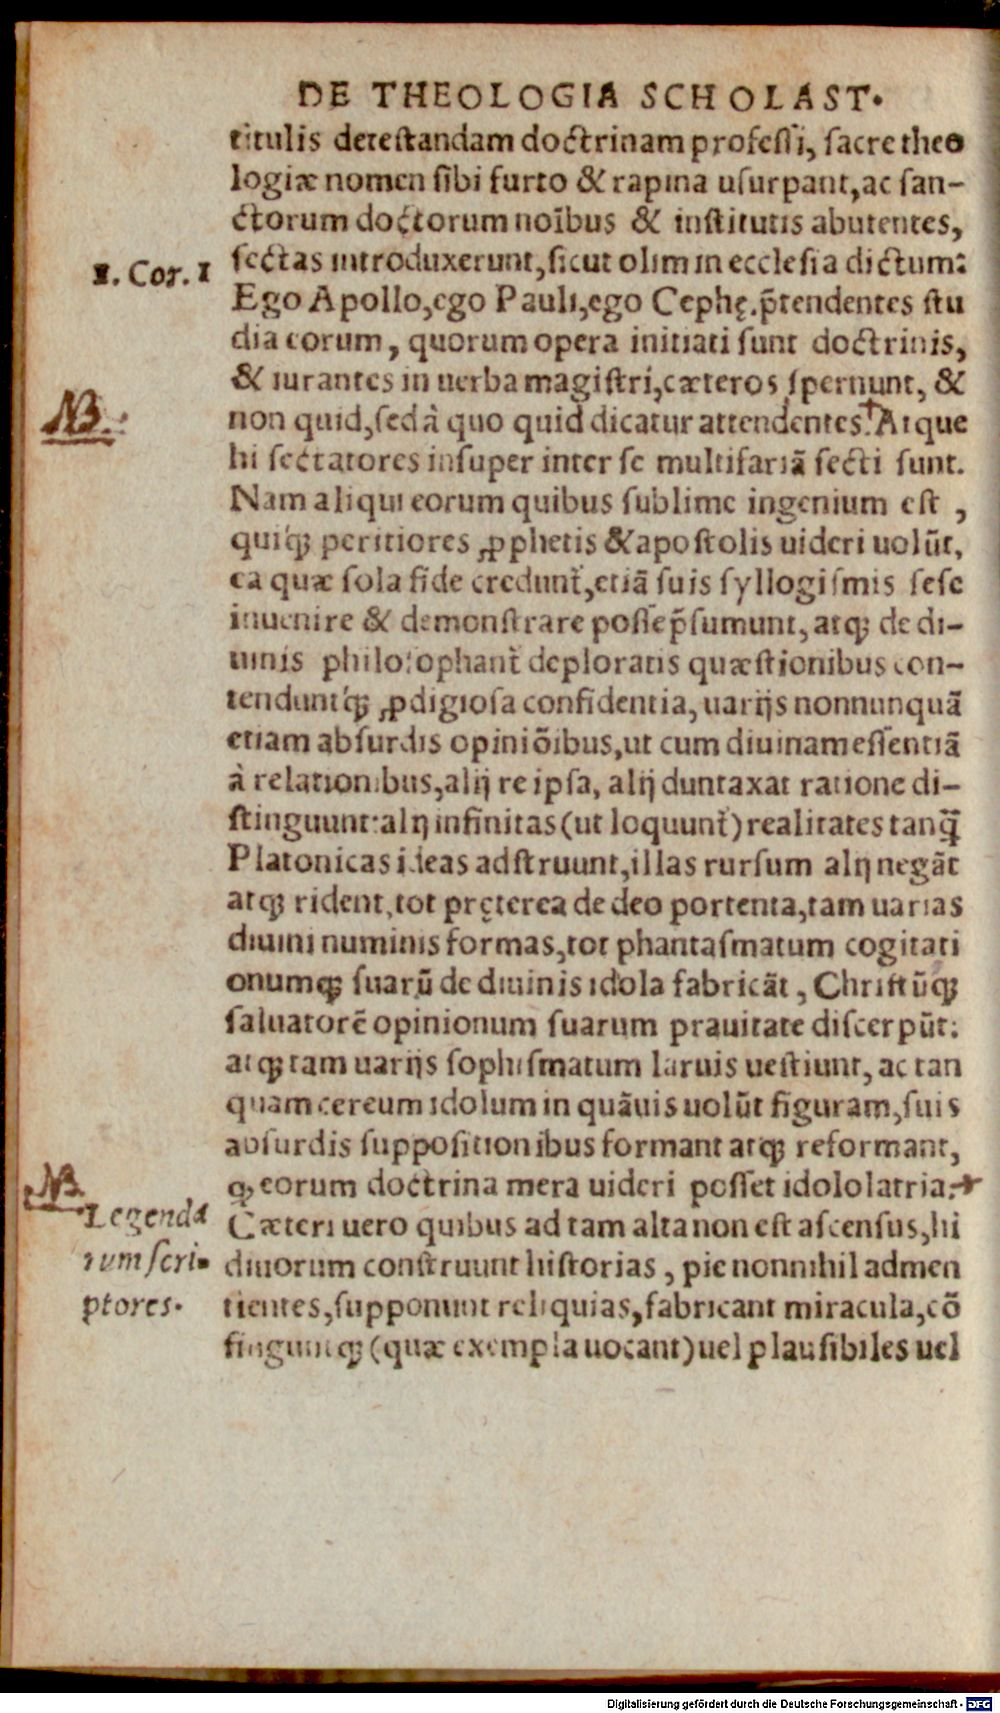 DE THEOLOGIA SCHOLAST.
titulis detestandam doctrinam professi, sacre theo
logiæ nomen sibi furto & rapina usurpant, ac san-
ctorum doctorum noĩbus & institutis abutentes,
1. Cor. 1
sectas introduxerunt, sicut olim in ecclesia dictum:
Ego Apollo, ego Pauli, ego Cephę. p̃tendentes stu
dia eorum, quorum opera initiati sunt doctrinis,
& iurantes in uerba magistri, cæteros spernunt, &
NB.
non quid, sed à quo quid dicatur attendentes.† Atque
hi sectatores insuper inter se multifariã secti sunt.
Nam aliqui eorum quibus sublime ingenium est ,
quiq́ꝫ peritiores ꝓphetis & apostolis uideri uolũt,
ea quæ sola fide credunt᷑, etiã suis syllogismis sese
inuenire & demonstrare posse p̃sumunt, atqꝫ de di-
uinis philosophant᷑ deploratis quæstionibus con-
tenduntq́ꝫ ꝓdigiosa confidentia, uarijs nonnunquã
etiam absurdis opiniõibus, ut cum diuinam essentiã
à relationibus, alij re ipsa, alij duntaxat ratione di-
stinguunt: alij infinitas (ut loquunt᷑) realitates tanq̃ꝫ
Platonicas ideas adstruunt, illas rursum alij negãt
atqꝫ rident, tot pręterea de deo portenta, tam uarias
diuini numinis formas, tot phantasmatum cogitati
onumqꝫ suarũ de diuinis idola fabricãt, Christũqꝫ
saluatorẽ opinionum suarum prauitate discerpũt:
atqꝫ tam uarijs sophismatum laruis uestiunt, ac tan
quam cereum idolum in quãuis uolũt figuram, suis
absurdis suppositionibus formant atqꝫ reformant,
NB.
ꝙ eorum doctrina mera uideri posset idololatria:†
Legenda
rum scri-
ptores.
Cæteri uero quibus ad tam alta non est ascensus, hi
diuorum construunt historias, pie nonnihil admen
tientes, supponunt reliquias, fabricant miracula, cõ
finguntqꝫ (quæ exempla uocant) uel plausibiles uel
Digitalisierung gefördert durch die Deutsche Forschungsgemeinschaft - DFG